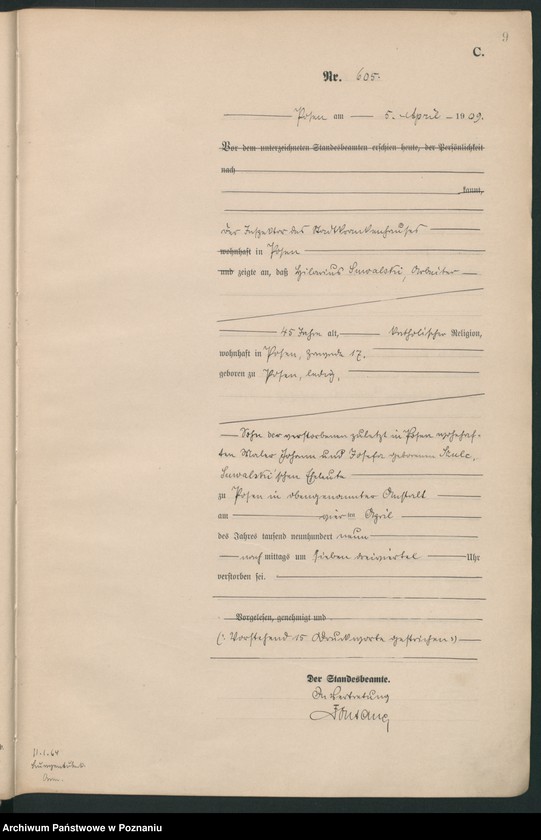 C.
Nr. 605.
Posen am 5. April 1909.
Vor dem unterzeichneten Standesbeamten erschien heute, der Persönlichkeit
nach
kannt,
der Inspektor des Stadtkrankenhauses
wohnhaft in Posen
und zeigte an, daß Hilarius Suwalski, Arbeiter
45 Jahre alt, katholischer Religion,
wohnhaft in Posen, 17.
geboren zu Posen, ledig,
Sohn der verstorbenen zuletzt in Posen wohnhaf-
ten Maler Johann und Josefa geborenen Szulc,
Suwalski'schen Eheleute
zu Posen in obengenannter Anstalt
am vierten April
des Jahres tausend neunhundert neun
nachmittags um sieben dreiviertel Uhr
verstorben sei.
Vorgelesen, genehmigt und
(: Vorstehend 15 Druckworte gestrichen :)
Der Standesbeamte.
In Vertretung
11.1.64
Archiwum Państwowe w Poznaniu